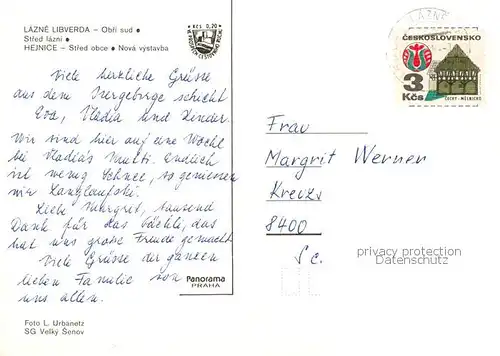 LÁZNĚ LIBVERDA – Obří sud ●
Střed lázní ●
HEJNICE – Střed obce ● Nová výstavba
Kčs 0,20
LÁZNĚ
ČESKOSLOVENSKO
3
Kčs
ČECHY - MĚLNICKO
Viele herzliche Grüsse
aus dem Isergebirge schickt
Eva, Vladia und Kinder.
Wir sind hier auf eine Woche
bei Vladiás Mutti. Endlich
ist wenig Schnee, so geniessen
wir Langlaufski.
Liebe Margret, tausend
Dank für das Päckli, das
hat uns große Freude gemacht
Viele Grüsse der ganzen
lieben Familie von
uns allen.
Frau
Margrit Werner
Kreuzs
8400
privacy protection
Datenschutz
Panorama
PRAHA
Foto L. Urbanetz
SG Velký Šenov